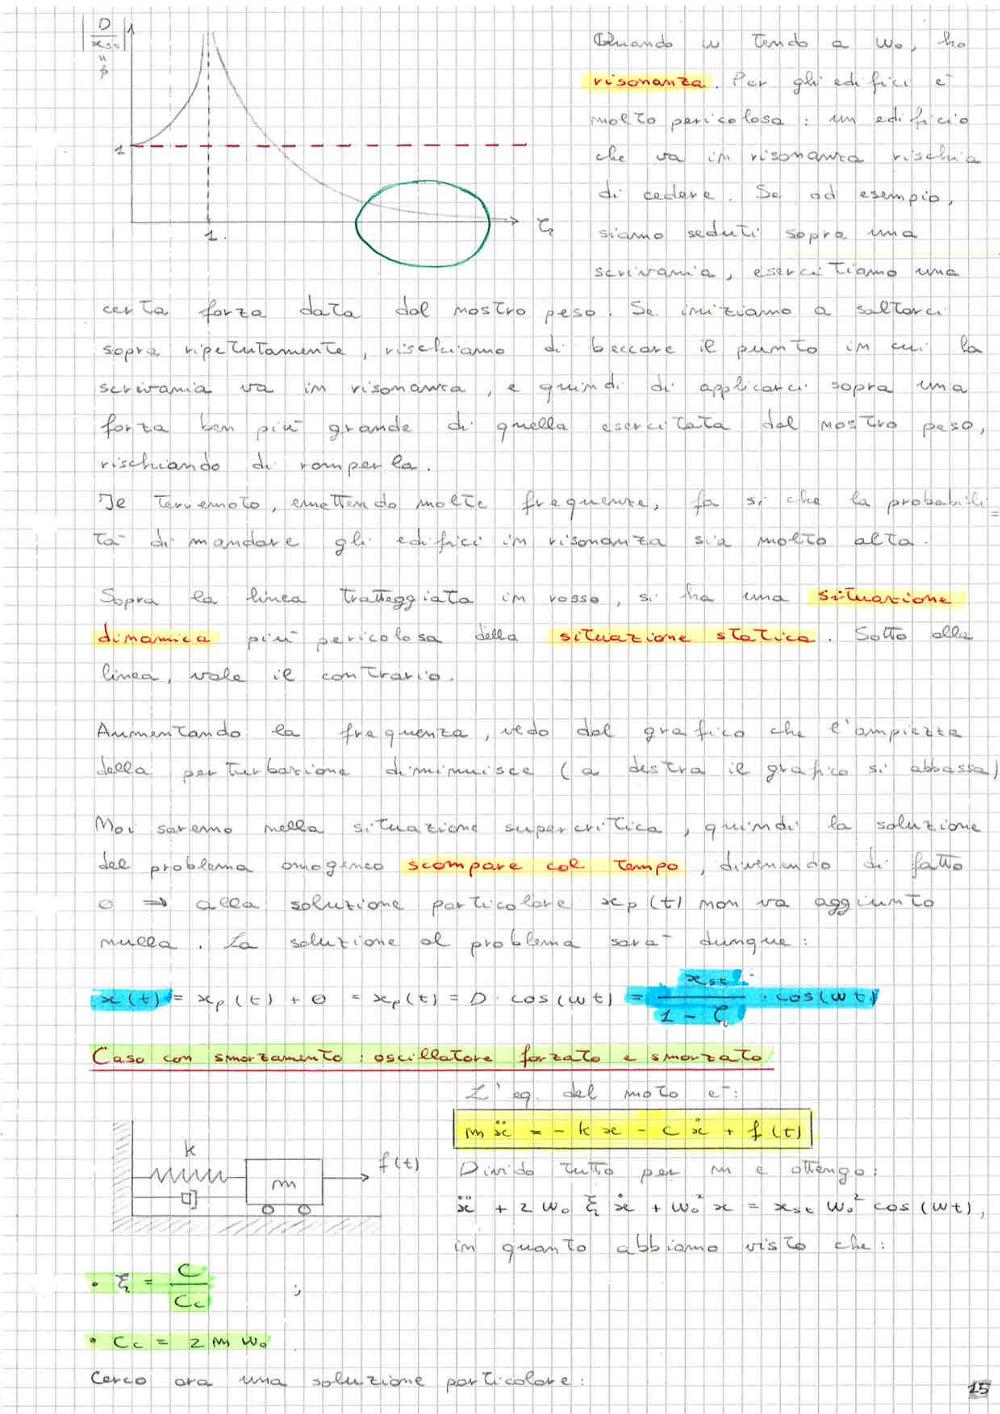 |D/xst| 1
"
β
1
1.
ζ
Quando ω tendo a ω₀, ho
risonanza. Per gli edifici è
molto pericolosa: un edificio
che va in risonanza rischia
di cedere. Se ad esempio,
siamo seduti sopra una
scrivania, esercitiamo una
certa forza data dal nostro peso. Se iniziamo a saltarci
sopra ripetutamente, rischiamo di beccare il punto in cui la
scrivania va in risonanza, e quindi di applicarci sopra una
forza ben più grande di quella esercitata dal nostro peso,
rischiando di romperla.
Il terremoto, emettendo molte frequenze, fa sì che la probabili=
tà di mandare gli edifici in risonanza sia molto alta.
Sopra la linea tratteggiata in rosso, si ha una situazione
dinamica più pericolosa della situazione statica. Sotto alla
linea, vale il contrario.
Aumentando la frequenza, vedo dal grafico che l'ampiezza
della perturbazione diminuisce (a destra il grafico si abbassa)
Noi saremo nella situazione supercritica, quindi la soluzione
del problema omogeneo scompare col tempo, divenendo di fatto
0 ⇒ alla soluzione particolare xp(t) non va aggiunto
nulla. La soluzione al problema sarà dunque:
x(t) = xp(t) + 0 = xp(t) = D · cos(ωt) = xst / (1 - ζ) · cos(ωt)
Caso con smorzamento: oscillatore forzato e smorzato
L'eq. del moto è:
mẍ = -kx - cẋ + f(t)
k
m
f(t)
Divido tutto per m e ottengo:
ẍ + 2ω₀ξẋ + ω₀²x = xst ω₀² cos(ωt),
in quanto abbiamo visto che:
• ξ = C/Cc ;
• Cc = 2mω₀
Cerco ora una soluzione particolare:
15